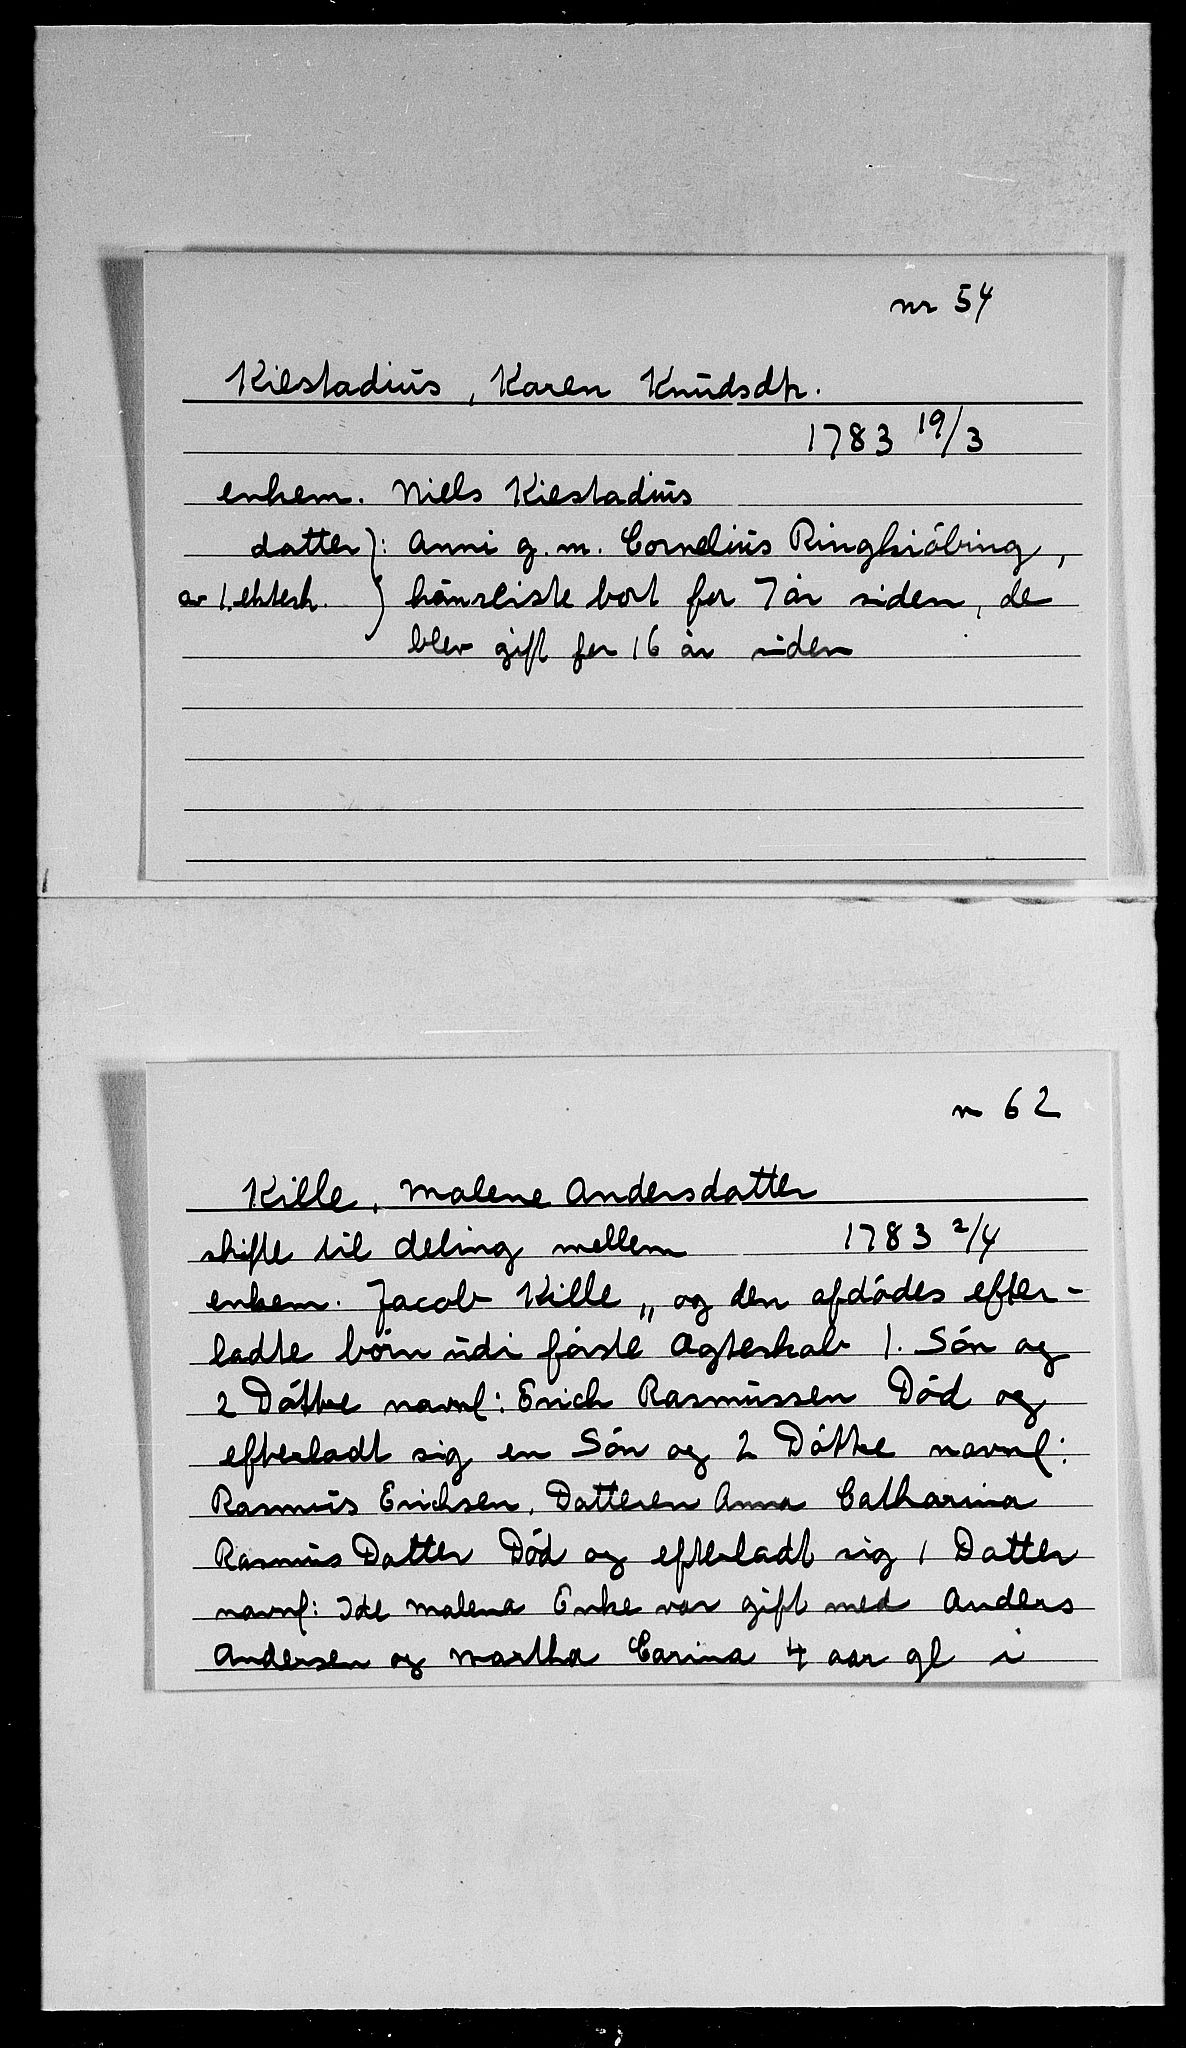 nr 54
Kiestadius, Karen Knudsdtr.
1783 19/3
enkem. Niels Kiestadius
datter): Anni g.m. Cornelius Ringkiöbing,
av 1. ektesk. ) bort for 7 år siden, de
blev gift for 16 år siden
nr 62
Kille, Malene Andersdatter
skifte til deling mellem 1783 2/4
enkem. Jacob Kille „ og den afdödes efter-
ladte börn udi förste Ægteskab 1. Sön og
2 Döttre navnl: Erich Rasmussen Död og
efterladt sig en Sön og 2 Döttre navnl:
Rasmus Erichsen, Datteren Anna Catharina
Rasmus Datter Död og efterladt sig 1 Datter
navnl: Ide Malena Enke var gift med Anders
Andersen og Martha Carina 4 aar gl i